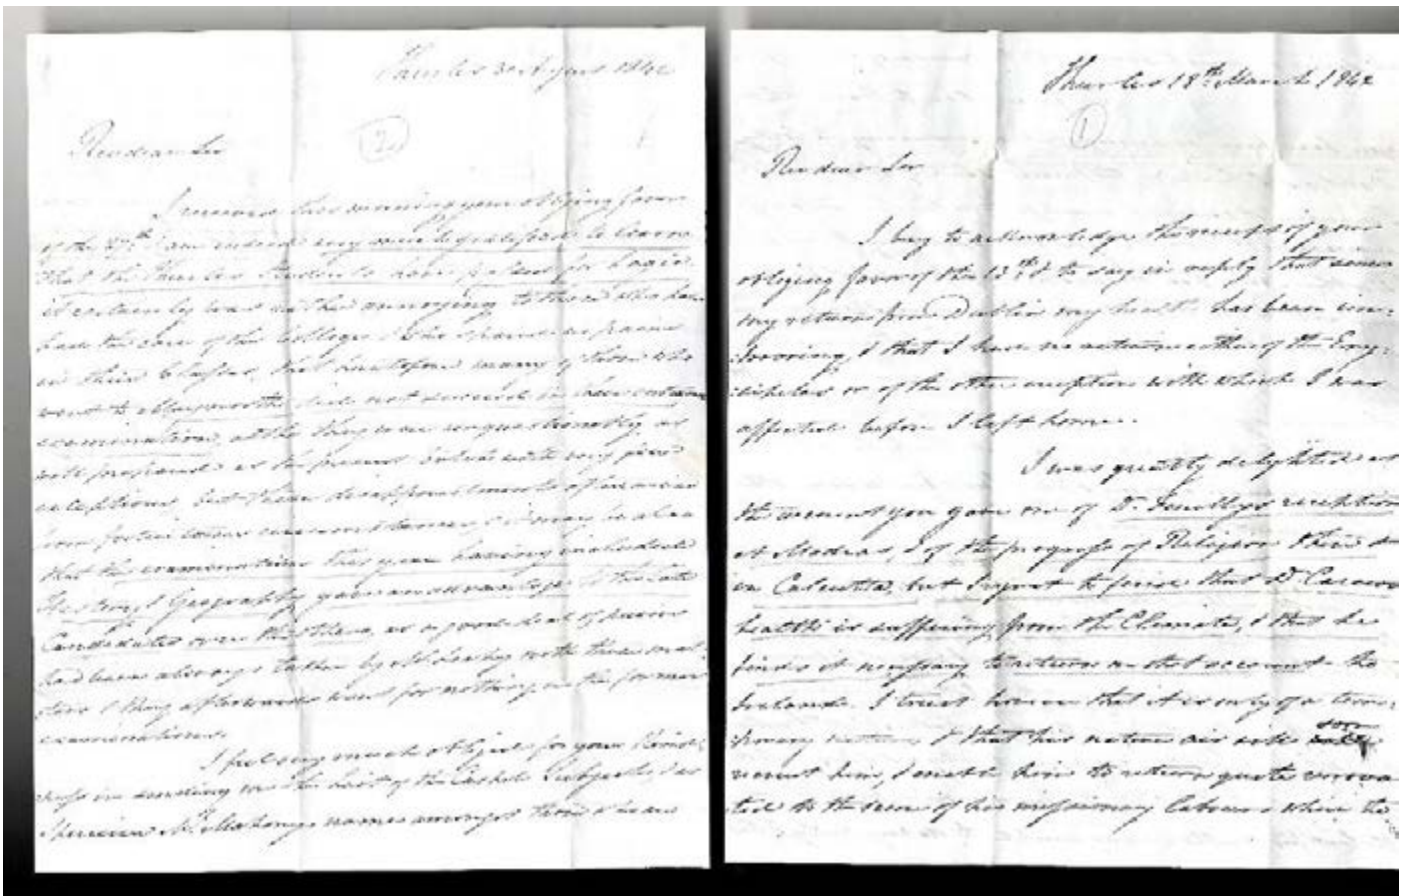 Thurles 1842
2
Revd dear Sir
I received this morning your obliging favor
of the 27th I am indeed very much gratified to learn
that the Thurles Students have passed for Logic
it certainly was rather annoying to those who have
had the care of the College & who spared no pains
in their Classes, that heretofore many of those who
went to Maynooth did not succeed in their entrance
examination, altho they were unquestionably as
well prepared as the present ones with very few
exceptions, but these disappointments
from fortuitous circumstances, it may be also
that the examinations this year having included
History & Geography gave an advantage to the late
Candidates over the others, as a good deal of pains
had been always taken by with those
& they afterwards went for nothing in the former
examinations.
I feel very much obliged for your kind-
ness in sending me the list of the Cashel Subjects, I
perceive Mr. Mahony's names amongst them &
Thurles 18th March 1842
1
Revd dear Sir
I beg to acknowledge the receipt of your
obliging favor of the 13th & to say in reply that since
my return from Dublin my health has been im-
proving, & that I have no return either of the Ery-
sipelas or of the other eruption with which I was
affected before I left home.
I was greatly delighted at
the account you gave me of Dr. Fennelly's reception
at Madras, & of the progress of Religion there &
in Calcutta, but I regret to find that Dr. Carew's
health is suffering from the Climate, & that he
finds it necessary to return on that account to
Ireland. I trust however that it is only of a tem-
porary nature, & that his native air will soon
recruit him, & enable him to return quite renova
ted to the scene of his missionary labours where the